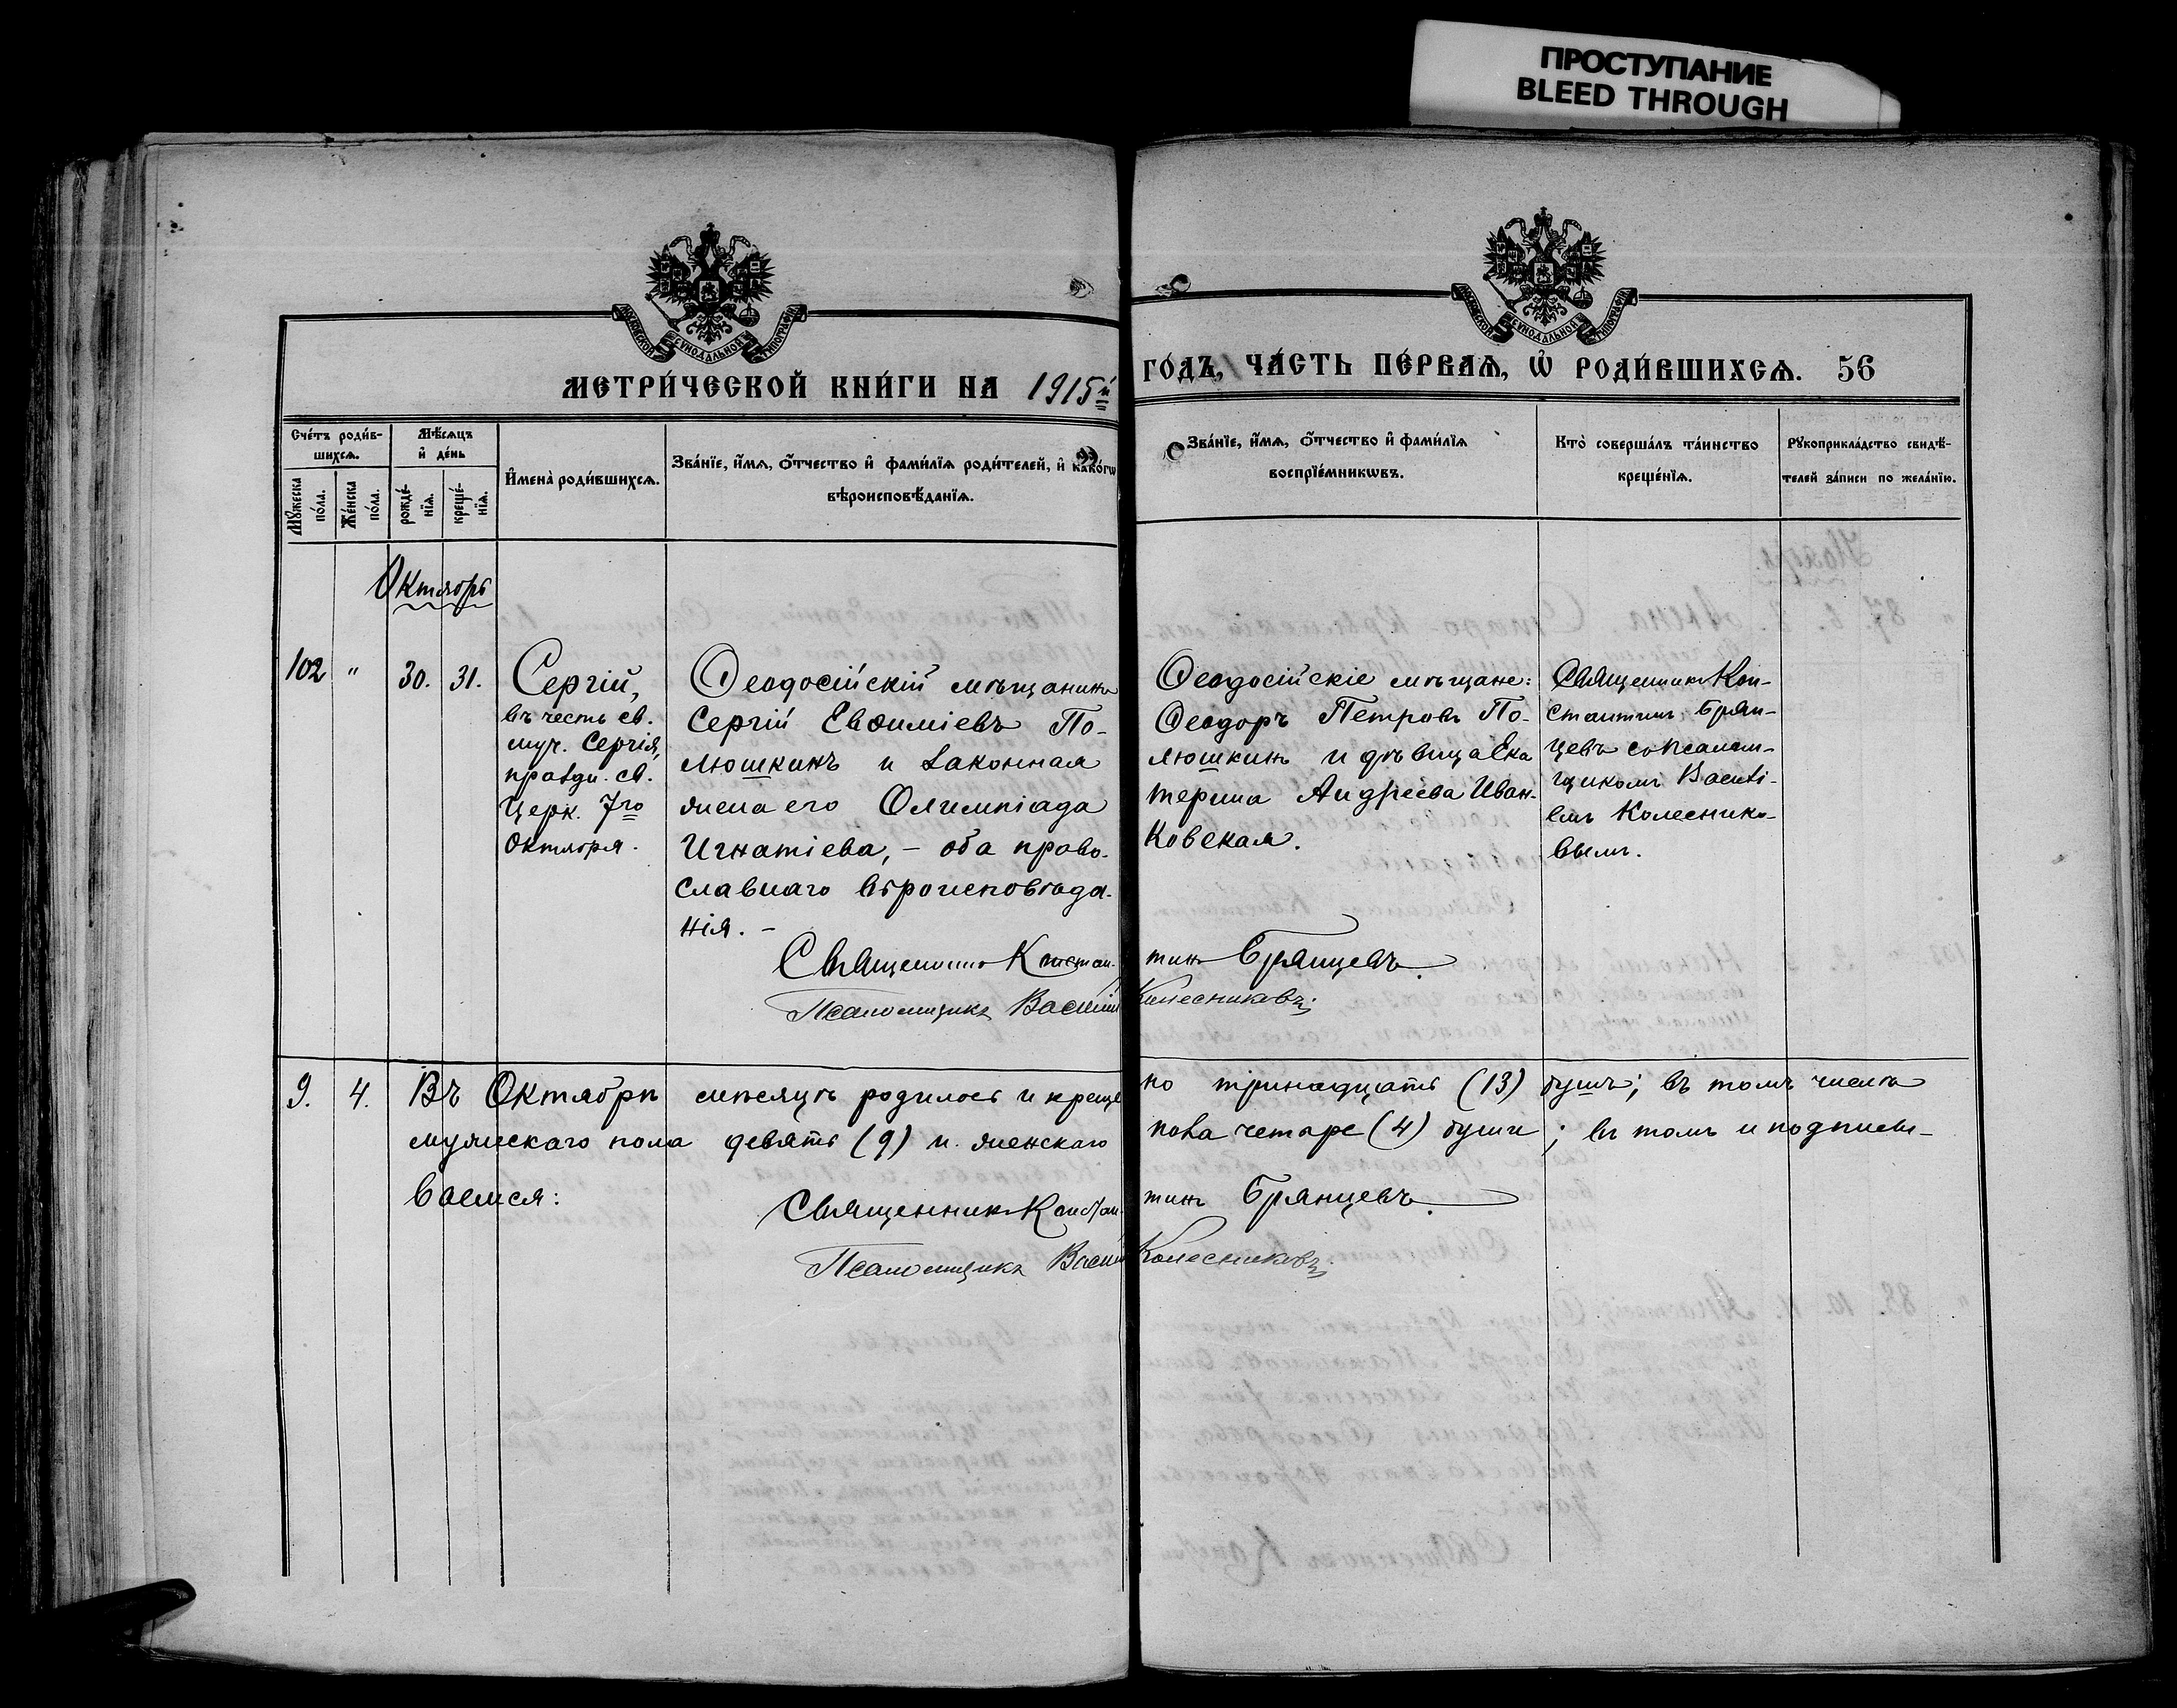 ПРОСТУПАНИЕ
BLEED THROUGH
МЕТРИ́ЧЕСКОЙ КНИ́ГИ НА 1915й
ГО́ДЪ, ЧА́СТЬ ПЕ́РВАѦ, Ѡ҆ РОДИ́ВШИХСѦ. 56
Сче́тъ роди́в-
шихсѧ.
Мꙋ́жеска
по́ла.
Же́нска
по́ла.
Мѣ́сѧцъ
и҆ де́нь
рожде́-
нїѧ.
креще́-
нїѧ.
И҆мена̀ роди́вшихсѧ.
Зва́нїе, и҆́мѧ, ѻ҆́тчество и҆ фами́лїѧ роди́телей, и҆ како́гѡ
вѣроисповѣ́данїѧ.
Зва́нїе, и҆́мѧ, ѻ҆́тчество и҆ фами́лїѧ
воспрїе́мникѡвъ.
Кто̀ соверша́лъ та́инство
креще́нїѧ.
Рꙋкоприкла́дство свидѣ́-
телей за́писи по жела́нїю.
Октябрь
102 " 30. 31.
Сергій,
въ честь св.
муч. Сергія,
праздн. св.
Церк. 7го
Октября.
Ѳеодосійскій мѣщанинъ
Сергій Евѳиміевъ По-
люшкинъ и законная
жена его Олимпіада
Игнатіева, – оба право-
славнаго вѣроисповѣда-
нія. –
Ѳеодосійскіе мѣщане:
Ѳеодоръ Петровъ По-
люшкинъ и дѣвица Ека
терина Андреева Иван-
ковская.
Священникъ Кон-
стантинъ Брян-
цевъ съ псалом-
щикомъ Василі-
емъ Колеснико-
вымъ.
Священникъ Констан- тинъ Брянцевъ.
Псаломщикъ Василій Колесниковъ.
9. 4. Въ Октябрѣ мѣсяцѣ родилось и креще но тринадцать (13) душъ; въ томъ числѣ
мужескаго пола девять (9) и женскаго пола четыре (4) души; въ томъ и подписы-
ваемся:
Священникъ Констан- тинъ Брянцевъ.
Псаломщикъ Василій Колесниковъ.